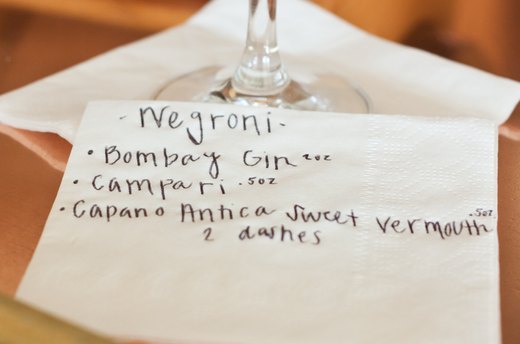 - Negroni -
• Bombay Gin 2oz
• Campari .5oz
• Capano Antica Sweet Vermouth .5oz
2 dashes